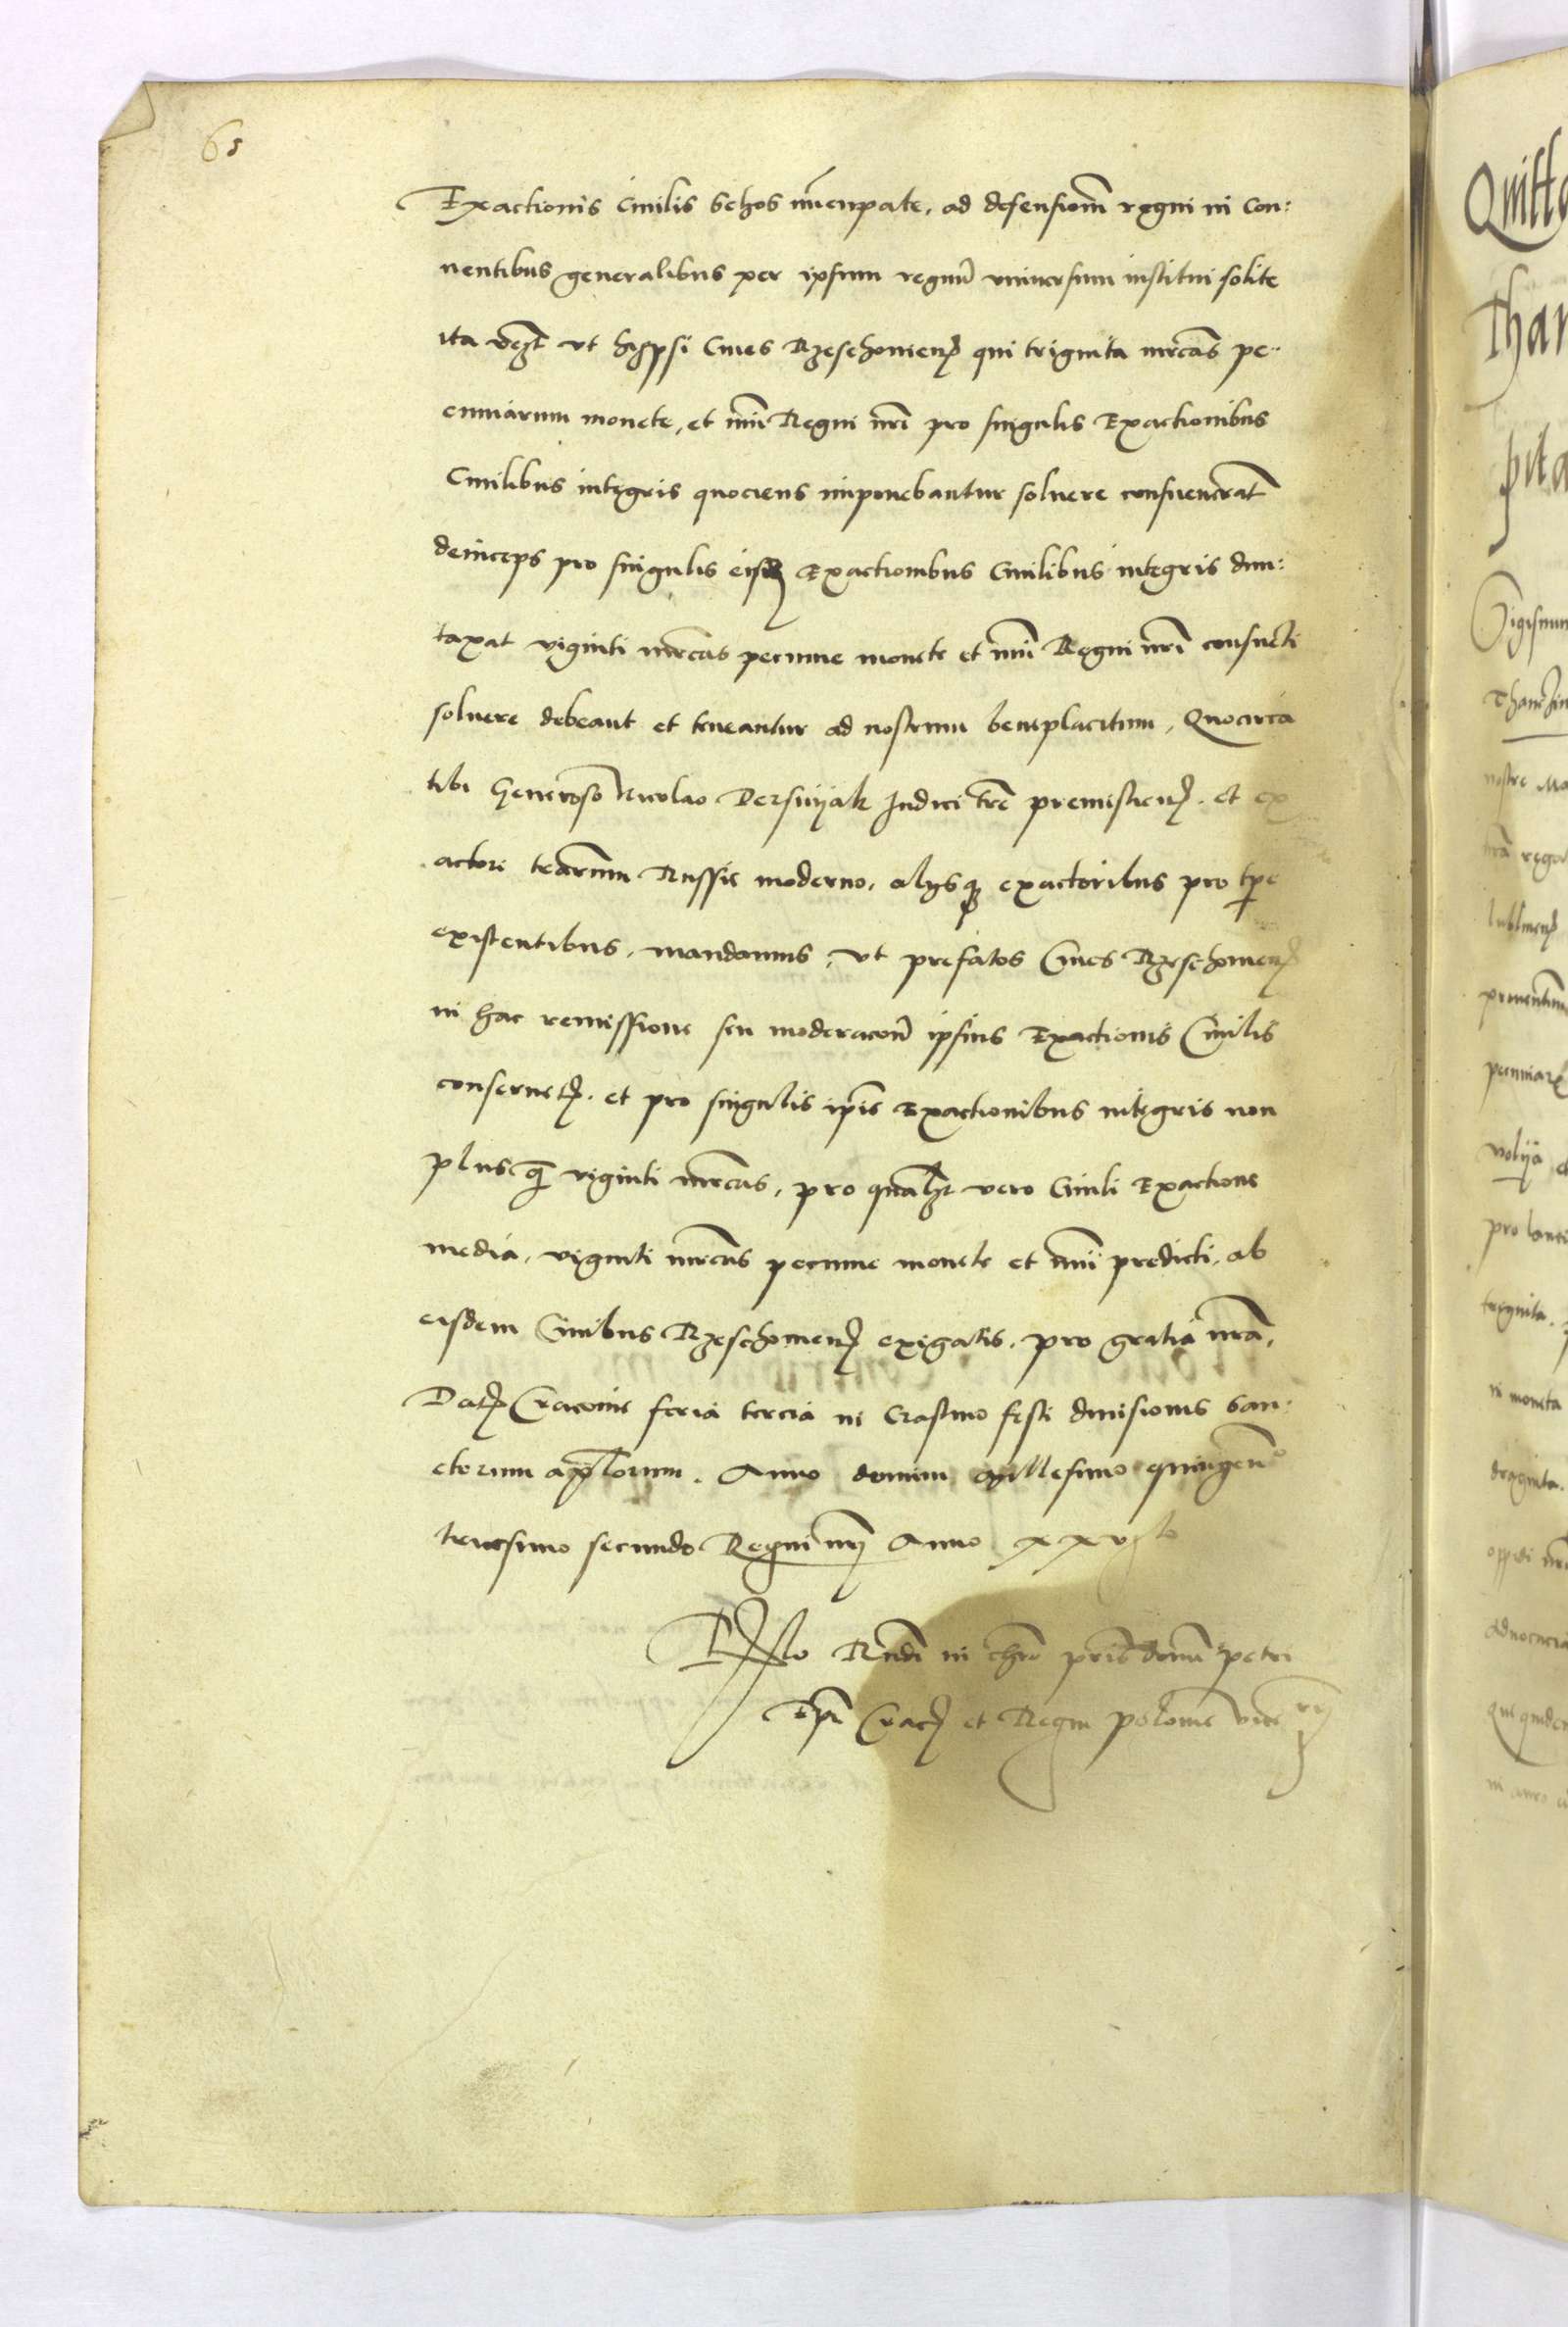 65
Exactionis Ciuilis Schos nūcupate, ad defensionē regni in Con:
uentibus generalibus per ipsum regnū uniuersum institui solite
ita vꝫt ut hi ipsi Ciues Rzeschouien̄ qui triginta mrcas pe:
cuniarum monete, et nūi Regni nr̄i pro singulis Exactionibus
Ciuilibus integris quociens imponebantur soluere consueuerāt
deinceps pro singulis eisdē Exactionibus Ciuilibus integris dun:
taxat viginti mrcas pecunie monete et nūi Regni nr̄i consueti
soluere debeant et teneantur ad nostrum beneplacitum, Quocirca
tibi Generoso Nicolao Dersnijak Judici tr̄e premislien̄. et ex
actori terrarum Russie moderno, alijsqꝫ exactoribus pro tp̄e
existentibus, mandamus, ut prefatos Ciues Rzeschouien̄
in hac remissione seu moderacōe ipsius Exactionis Ciuilis
conseruetis, et pro singulis ip̄is Exactionibus integris non
plusqꝫ viginti mrcas, pro qualꝫ vero Ciuili Exactione
media, viginti mrcas pecunie monete et nūi predicti, ab
eisdem Ciuibus Rzeschouien̄ exigatis, pro gratia nr̄a,
Datꝫ Cracouie feria tercia in Crastino festi diuisionis San:
ctorum ap̄lorum. Anno domini Millesimo quingenᵒ
tricesimo secundo Regni nr̄j Anno xxvjto
Rˡᵒ Rn̄di in chr̄o pr̄is domī Petri
Ep̄i Cracꝫ et Regni Polonie vice
Quitt
Than
pita
Sigismun
nostre Ma
lublinen̄
pecuniar
volija
pro lani
triginta.
in moneta
draginta.
oppidi nr̄i
aduocacia
que quidem